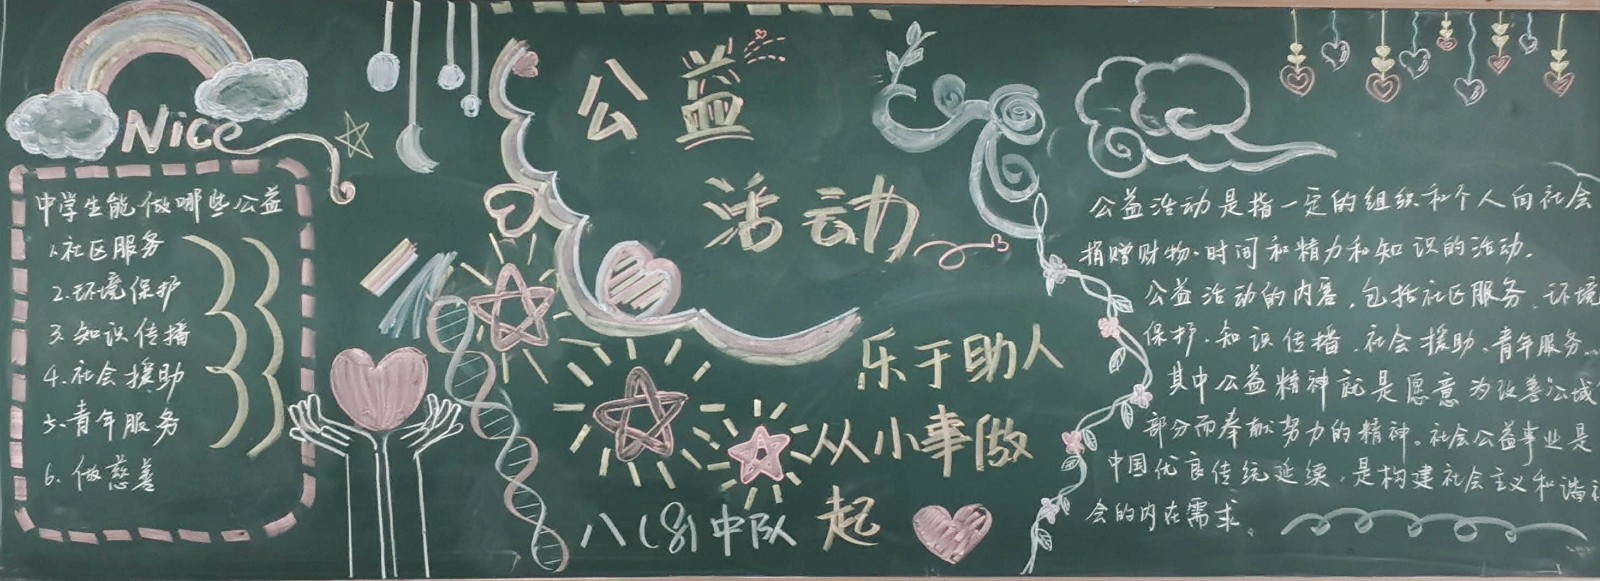 Nice
中学生能做哪些公益
1.社区服务
2.环境保护
3.知识传播
4.社会援助
5.青年服务
6.做慈善
公益
活动
乐于助人
从小事做
起
八(8)中队
公益活动是指一定的组织和个人向社会
捐赠财物、时间和精力和知识的活动。
公益活动的内容,包括社区服务、环境
保护、知识传播、社会援助、青年服务...
其中公益精神就是愿意为改善公域
部分而奉献努力的精神。社会公益事业是
中国优良传统延续,是构建社会主义和谐社
会的内在需求。